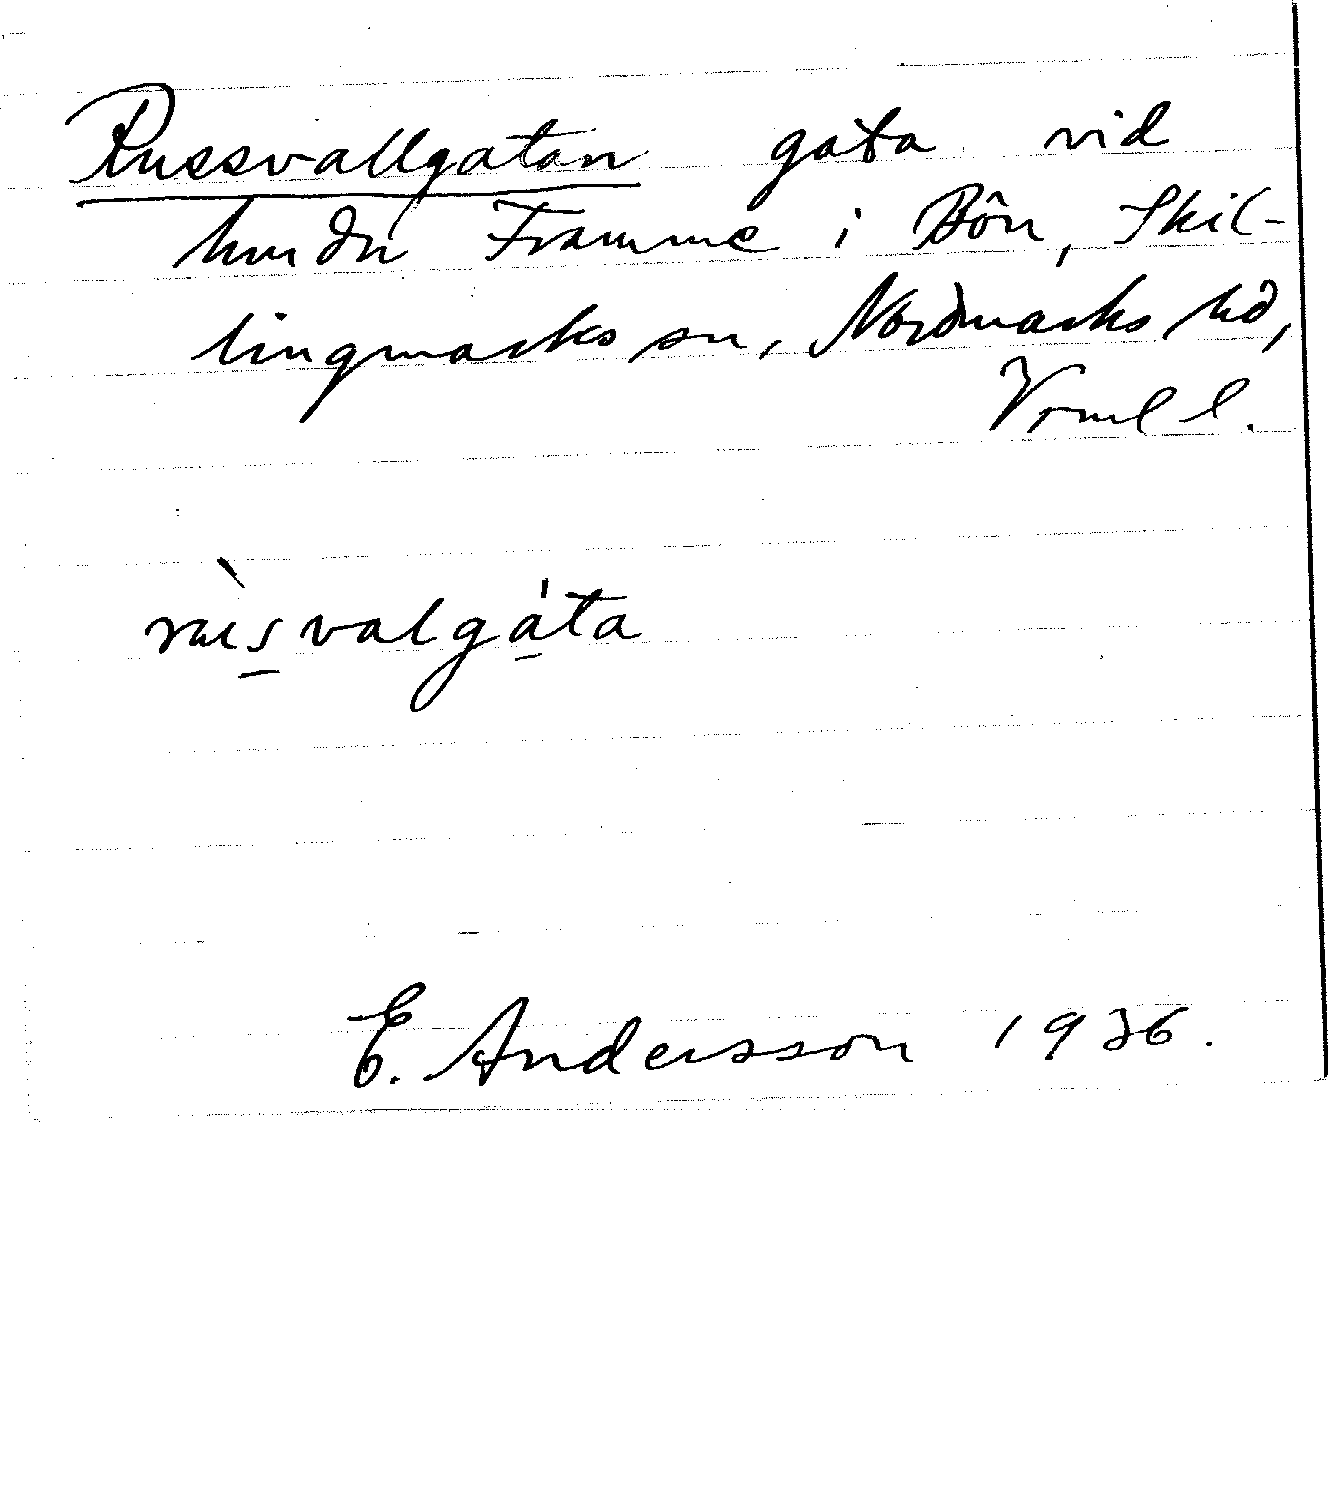 Russvallgatan gata vid
Framme i Bôn, Skil-
lingmarks sn, Nordmarks hd,
Vrml l.
E. Andersson 1936.